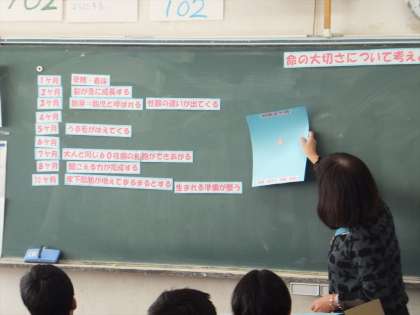 102
102
命の大切さについて考え
1ヶ月 受精・着床
2ヶ月 脳が急に成長する
3ヶ月 胎芽→胎児と呼ばれる 性器の違いが出てくる
4ヶ月
5ヶ月 うぶ毛がはえてくる
6ヶ月
7ヶ月 大人と同じ60種類の細胞ができあがる
8ヶ月 聞こえる力が完成する
10ヶ月 皮下脂肪が増えてまるまるとする 生まれる準備が整う